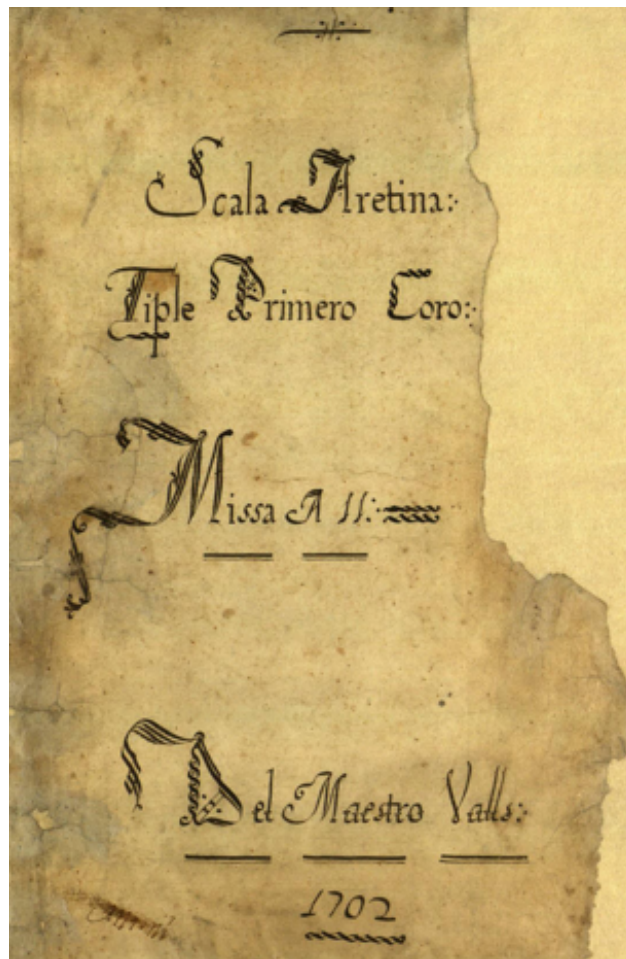 Scala Aretina:
Tiple Primero Coro:
Missa A 11:
Del Maestro Valls:
1702